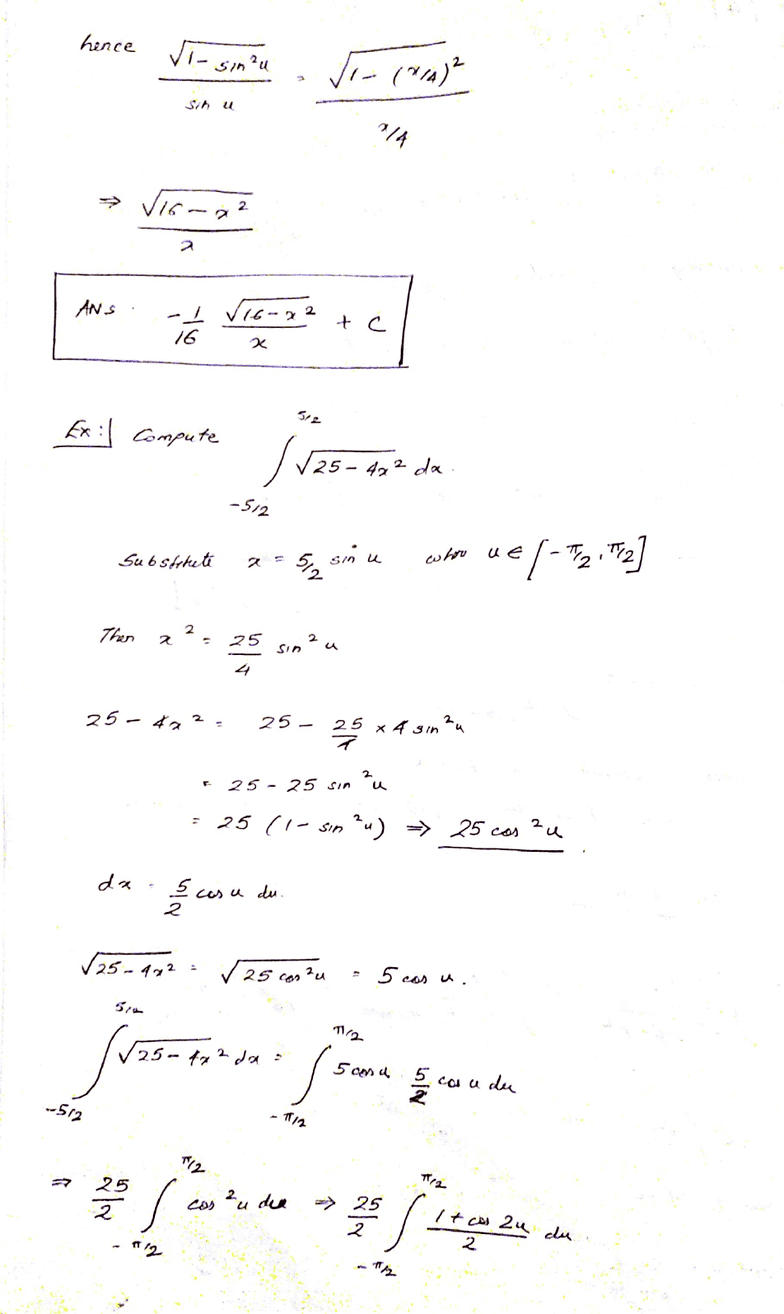 hence √(1 - sin²u) / sin u = √(1 - (x/4)²) / x/4
⇒ √(16 - x²) / x
ANS. -1/16 √(16 - x²) / x + C
Ex:] Compute ∫_{-5/2}^{5/2} √(25 - 4x²) dx.
Substitute x = 5/2 sin u where u ∈ [-π/2, π/2]
Then x² = 25/4 sin²u
25 - 4x² = 25 - 25/4 × 4 sin²u
= 25 - 25 sin²u
= 25 (1 - sin²u) ⇒ 25 cos²u.
dx = 5/2 cos u du.
√(25 - 4x²) = √(25 cos²u) = 5 cos u.
∫_{-5/2}^{5/2} √(25 - 4x²) dx = ∫_{-π/2}^{π/2} 5 cos u 5/2 cos u du
⇒ 25/2 ∫_{-π/2}^{π/2} cos²u du ⇒ 25/2 ∫_{-π/2}^{π/2} (1 + cos 2u)/2 du.